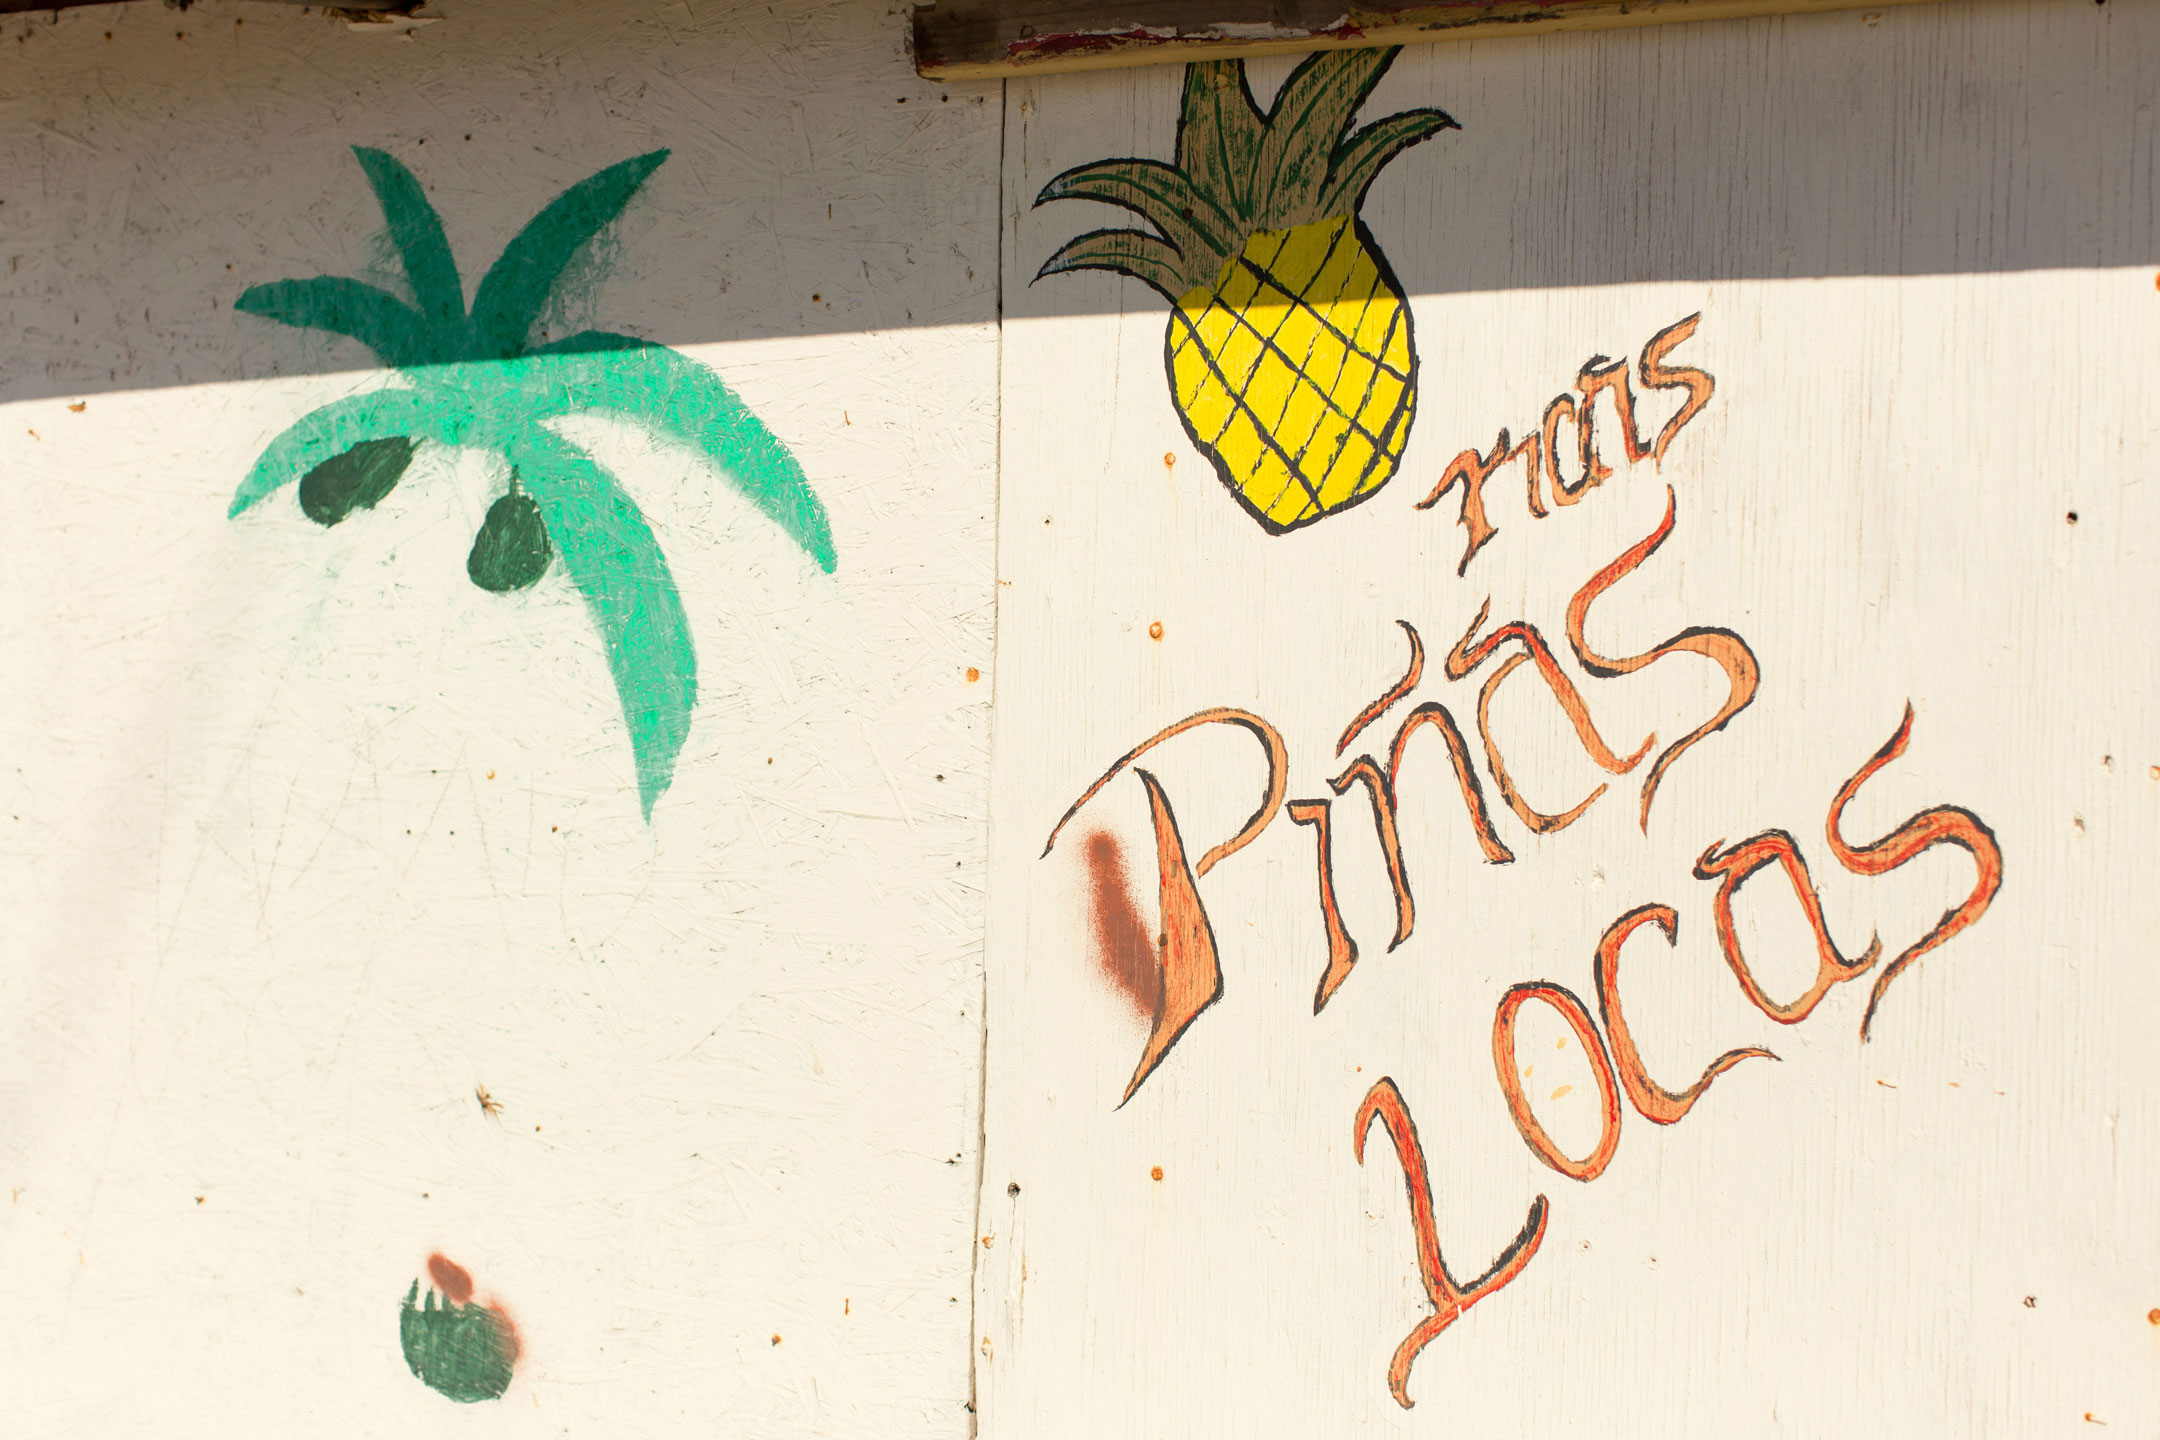 ricas
Piñas
Locas